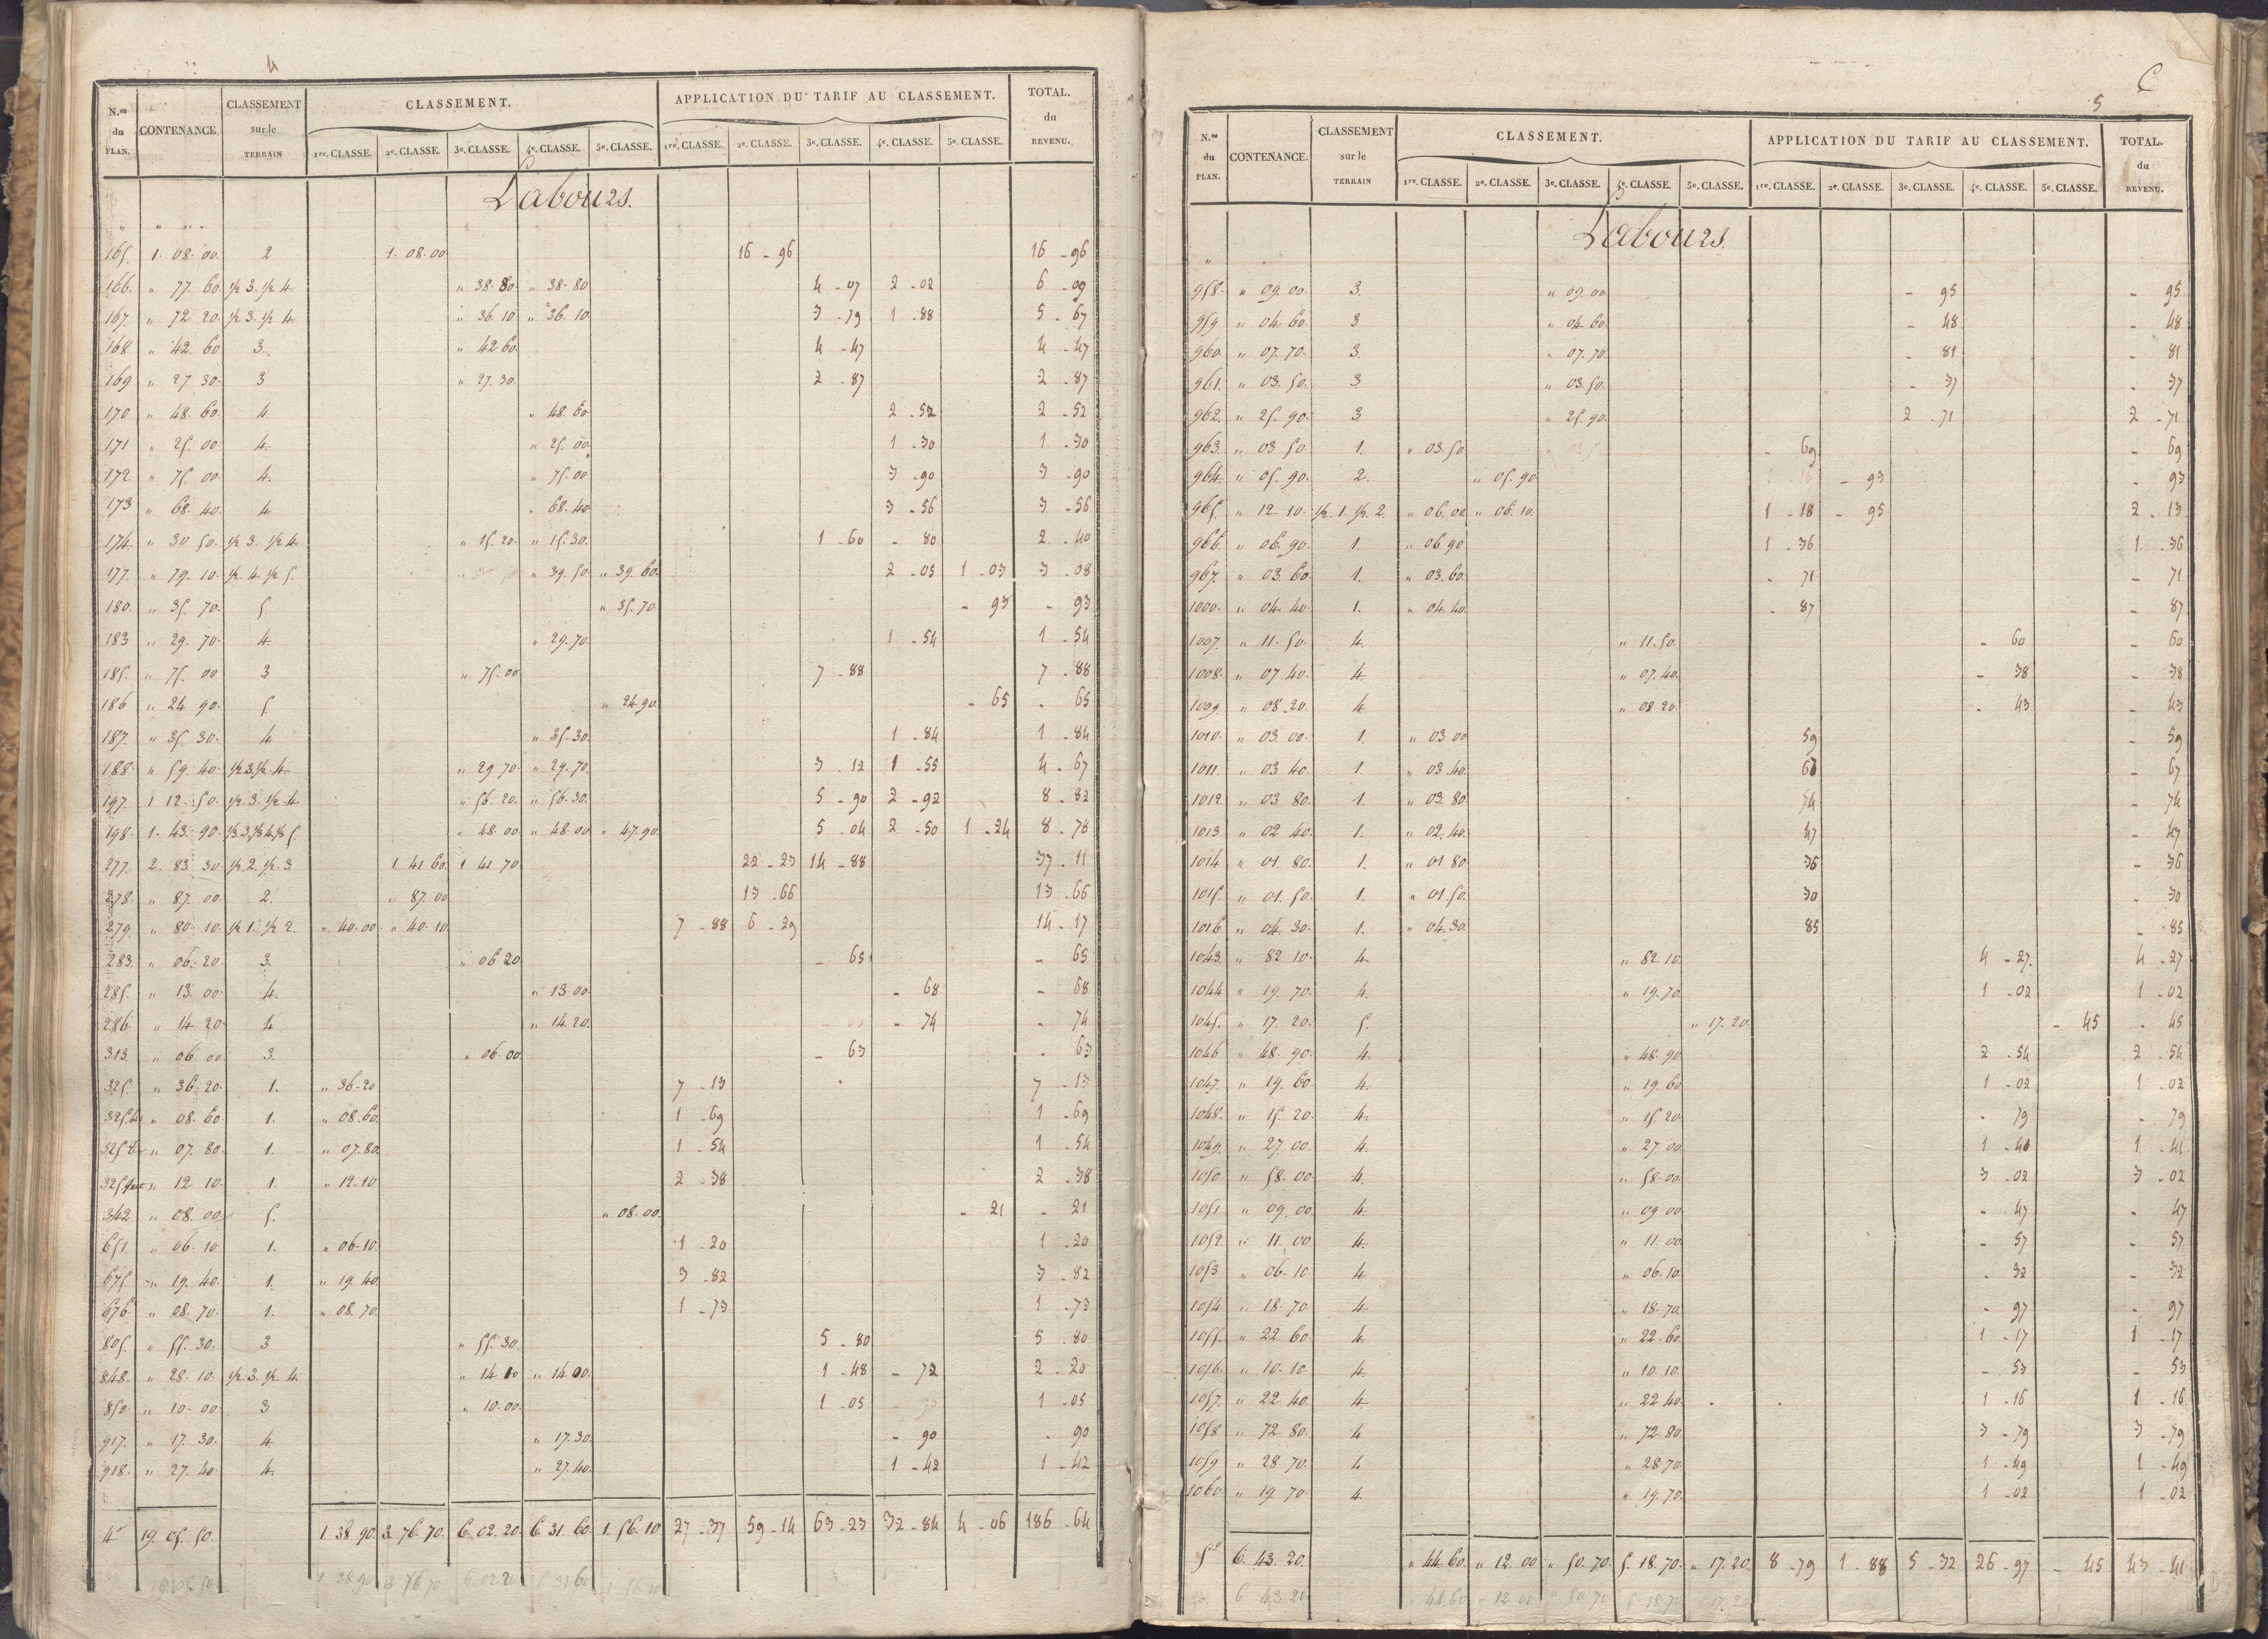 4
N.os du PLAN. CONTENANCE. CLASSEMENT sur le TERRAIN CLASSEMENT. APPLICATION DU TARIF AU CLASSEMENT. TOTAL. du REVENU.
1re. CLASSE. 2e. CLASSE. 3e. CLASSE. 4e. CLASSE. 5e. CLASSE. 1re. CLASSE. 2e. CLASSE. 3e. CLASSE. 4e. CLASSE. 5e. CLASSE.
Labours.
" " " "
165. 1. 08. 00. 2 1. 08. 00 16 - 96 16 - 96
166. " 77. 60. 1/2 3. 1/2 4. " 38. 80 " 38. 80 4 - 07 2 - 02 6 - 09
167. " 72. 20. 1/2 3. 1/2 4. " 36. 10 " 36. 10 3 - 79 1 - 88 5 - 67
168 " 42. 60 3. " 42 60. 4 - 47 4 - 47
169 " 27 30. 3 " 27. 30. 2 - 87 2 - 87
170 " 48. 60. 4 " 48. 60 2 - 52 2 - 52
171 " 25. 00 4. " 25. 00. 1 - 30 1 - 30
172. " 75. 00. 4. " 75. 00 3 - 90 3 - 90
173 " 68. 40. 4 " 68. 40. 3 - 56 3 - 56
174. " 30 50. 1/2 3. 1/2 4. " 15. 20. " 15. 30. 1 - 60 - 80 2 - 40
177. " 79. 10. 1/2. 4. 1/2 5. " 39. 50. " 39. 60. 2 - 05 1 - 03 3 - 08
180. " 35. 70. 5. " 35. 70. - 93 - 93
183 " 29. 70. 4. " 29. 70. 1 - 54 1 - 54
185. " 75. 00 3 " 75. 00 7 - 88 7 - 88
186 " 24 90. 5. " 24. 90. - 65 - 65
187. " 35. 30. 4. " 35. 30. 1 - 84 1 - 84
188. " 59. 40. 1/2 3. 1/2. 4. " 29 70. " 29. 70. 3 - 12 1 - 55 4 - 67
197. 1 12. 50. 1/2. 3. 1/2. 4. " 56. 20. " 56. 30. 5 - 90 2 - 92 8 - 82
198. 1. 43. 90. 1/3. 3. 1/3 4. 1/3 5. " 48. 00. " 48. 00 " 47. 90 5 - 04 2 - 50 1 - 24 8 - 78
277. 2. 83 30. 1/2. 2. 1/2. 3. 1 41 60. 1 41. 70 22 - 23 14 - 88 37 - 11
278. " 87. 00. 2. " 87. 00 13 - 66 13 - 66
279. " 80. 10. 1/2 1. 1/2 2. " 40. 00 " 40. 10 7 - 88 6 - 29 14 - 17
283. " 06. 20. 3. " 06 20 - 65 - 65
285. " 13. 00. 4. " 13 00. - 68 - 68
286. " 14 20. 4 " 14. 20. - 74 - 74
313. " 06 00 3. " 06. 00 - 63 - 63
325. " 36. 20. 1. " 36. 20 7 - 13 7 - 13
325. b " 08. 60. 1. " 08. 60. 1 - 69 1 - 69
325 t " 07. 80. 1. " 07. 80. 1 - 54 1 - 54
325 quat " 12 10. 1. " 12. 10 2 - 38 2 - 38
342. " 08. 00. 5. " 08. 00. - 21 - 21
651. " 06. 10. 1. " 06. 10. 1 - 20 1 - 20
675. " 19. 40. 1. " 19. 40 3 - 82 3 - 82
676. " 08. 70. 1. " 08. 70. 1 - 73 1 - 73
805. " 55. 30. 3 " 55. 30. 5 - 80 5 - 80
848. " 28. 10. 1/2. 3. 1/2. 4. " 14 10 " 14 00. 1 - 48 - 72 2 - 20
850. " 10. 00. 3 " 10. 00. 1 - 05 1 - 05
917. " 17. 30. 4. " 17. 30. - 90 - 90
918. " 27. 40. 4. " 27. 40. 1 - 42 1 - 42
4 19. 05. 50. 1. 38. 90. 3. 76. 70. 6. 02. 20. 6. 31. 60. 1. 56. 10 27 - 37 59 - 14 63 - 23 32 - 84 4 - 06 186 - 64
19 05 50 1 38 90 3 76 70 6. 02 20 6 31 60 1 56 10
C
5
N.os du PLAN. CONTENANCE. CLASSEMENT sur le TERRAIN CLASSEMENT. APPLICATION DU TARIF AU CLASSEMENT. TOTAL. du REVENU.
1re. CLASSE. 2e. CLASSE. 3e. CLASSE. 4e. CLASSE. 5e. CLASSE. 1re. CLASSE. 2e. CLASSE. 3e. CLASSE. 4e. CLASSE. 5e. CLASSE.
Labours.
"
958. " 09. 00. 3. " 09. 00 - 95 - 95
959. " 04. 60. 3 " 04. 60. - 48 - 48
960. " 07. 70. 3. " 07. 70. - 81 - 81
961. " 03. 50. 3 " 03. 50. - 37 - 37
962. " 25. 90. 3 " 25. 90. 2 - 71 2 - 71
963. " 03 50. 1. " 03. 50 - 69 - 69
964. " 05. 90. 2. " 05. 90 - 93 - 93
965. " 12. 10. 1/2. 1. 1/2. 2. " 06. 00 " 06. 10. 1 - 18 - 95 2 - 13
966. " 06. 90. 1. " 06 90 1 - 36 1 - 36
967. " 03. 60. 1. " 03. 60. - 71 - 71
1000. " 04. 40. 1. " 04. 40 - 87 - 87
1007. " 11. 50. 4. " 11. 50. - 60 - 60
1008. " 07 40. 4. " 07. 40. - 38 - 38
1009. " 08. 20. 4. " 08 20. - 43 - 43
1010. " 03. 00. 1. " 03 00 59 - 59
1011. " 03 40. 1. " 03. 40. 67 - 67
1012. " 03 80. 1. " 03 80. 74 - 74
1013 " 02 40. 1. " 02. 40. 47 - 47
1014 " 01. 80. 1. " 01 80 36 - 36
1015. " 01. 50. 1. " 01. 50. 30 - 30
1016 " 04. 30. 1. " 04. 30. 85 - 85
1043. " 82 10. 4. " 82 10. 4 - 27. 4 - 27
1044 " 19. 70. 4. " 19. 70. 1 - 02 1 - 02
1045. " 17. 20. 5. " 17. 20. - 45 - 45
1046 " 48. 90. 4. " 48. 90 2 - 54 2 - 54
1047. " 19. 60. 4. " 19. 60 1 - 02 1 - 02
1048. " 15. 20. 4. " 15. 20. - 79 - 79
1049. " 27. 00. 4. " 27. 00 1 - 41 1 - 41
1050 " 58. 00 4. " 58. 00. 3 - 02 3 - 02
1051 " 09. 00 4. " 09 00. - 47 - 47
1052. " 11. 00 4. " 11. 00 - 57 - 57
1053 " 06. 10. 4 " 06. 10. - 32 - 32
1054. " 18. 70. 4. " 18. 70. - 97 - 97
1055. " 22. 60 4. " 22. 60. 1 - 17 1 - 17
1056. " 10. 10. 4. " 10. 10. - 53 - 53
1057. " 22 40. 4. " 22 40. 1 - 16 1 - 16
1058 " 72 80. 4 " 72. 80 3 - 79 3 - 79
1059 " 28. 70. 4 " 28 70. 1 - 49 1 - 49
1060 " 19. 70 4. " 19. 70. 1 - 02 1 - 02
5 6. 43. 20. " 44. 60. " 12. 00 " 50. 70. 5. 18. 70. " 17. 20. 8 - 79 1 - 88 5 - 32 26 - 97 - 45 43 - 41
6 43. 20 44. 60 12 00 50 70 5 18 70 17. 20